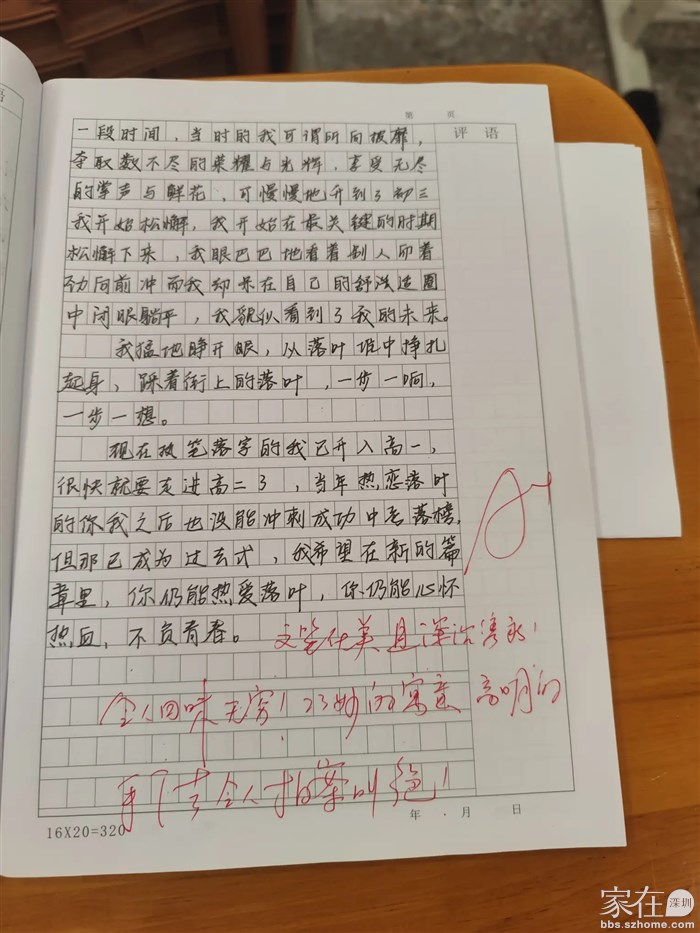 第 页
评 语
一段时间，当时的我可谓所向披靡，
夺取数不尽的荣耀与光辉，享受无尽
的掌声与鲜花，可慢慢地升到了初三
我开始松懈，我开始在最关键的时期
松懈下来，我眼巴巴地看着别人卯着
劲向前冲而我却呆在自己的舒适造圈
中闭眼躺平，我貌似看到了我的未来。
我猛地睁开眼，从落叶堆中挣扎
起身，踩着街上的落叶，一步一响，
一步一想。
现在执笔落字的我已升入高一，
很快就要走进高二了，当年热恋落叶
的你我之后也没能冲刺成功中考落榜，
但那已成为过去式，我希望在新的篇
章里，你仍能热爱落叶，你仍能心怀
热血，不负青春。
A+
文笔优美且深沉隽永！
令人回味无穷！巧妙的寓意 高明的
手法令人拍案叫绝！
16X20=320
年 月 日
家在深圳
bbs.szhome.com